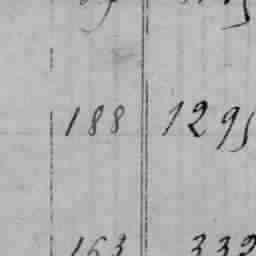 188 1295
163 332